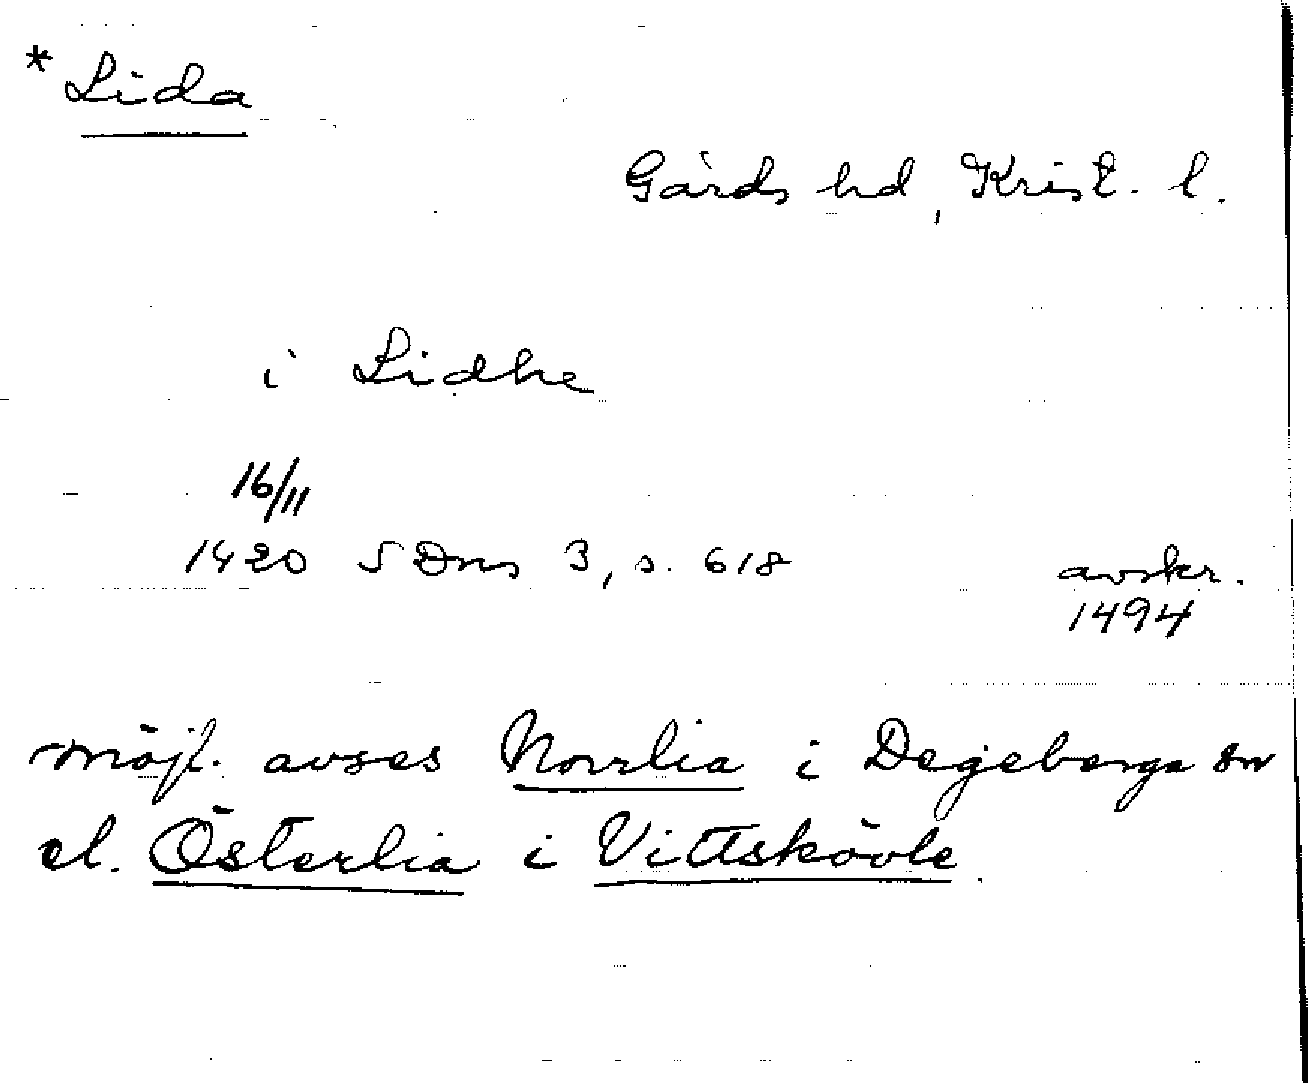 * Lida
Gärds hd, Krist. l.
i Lidhe
16/11
1420 SDns 3, s. 618
avskr.
1494
möjl. avses Norrlia i Degeberga sn
el. Österlia i Vittskövle